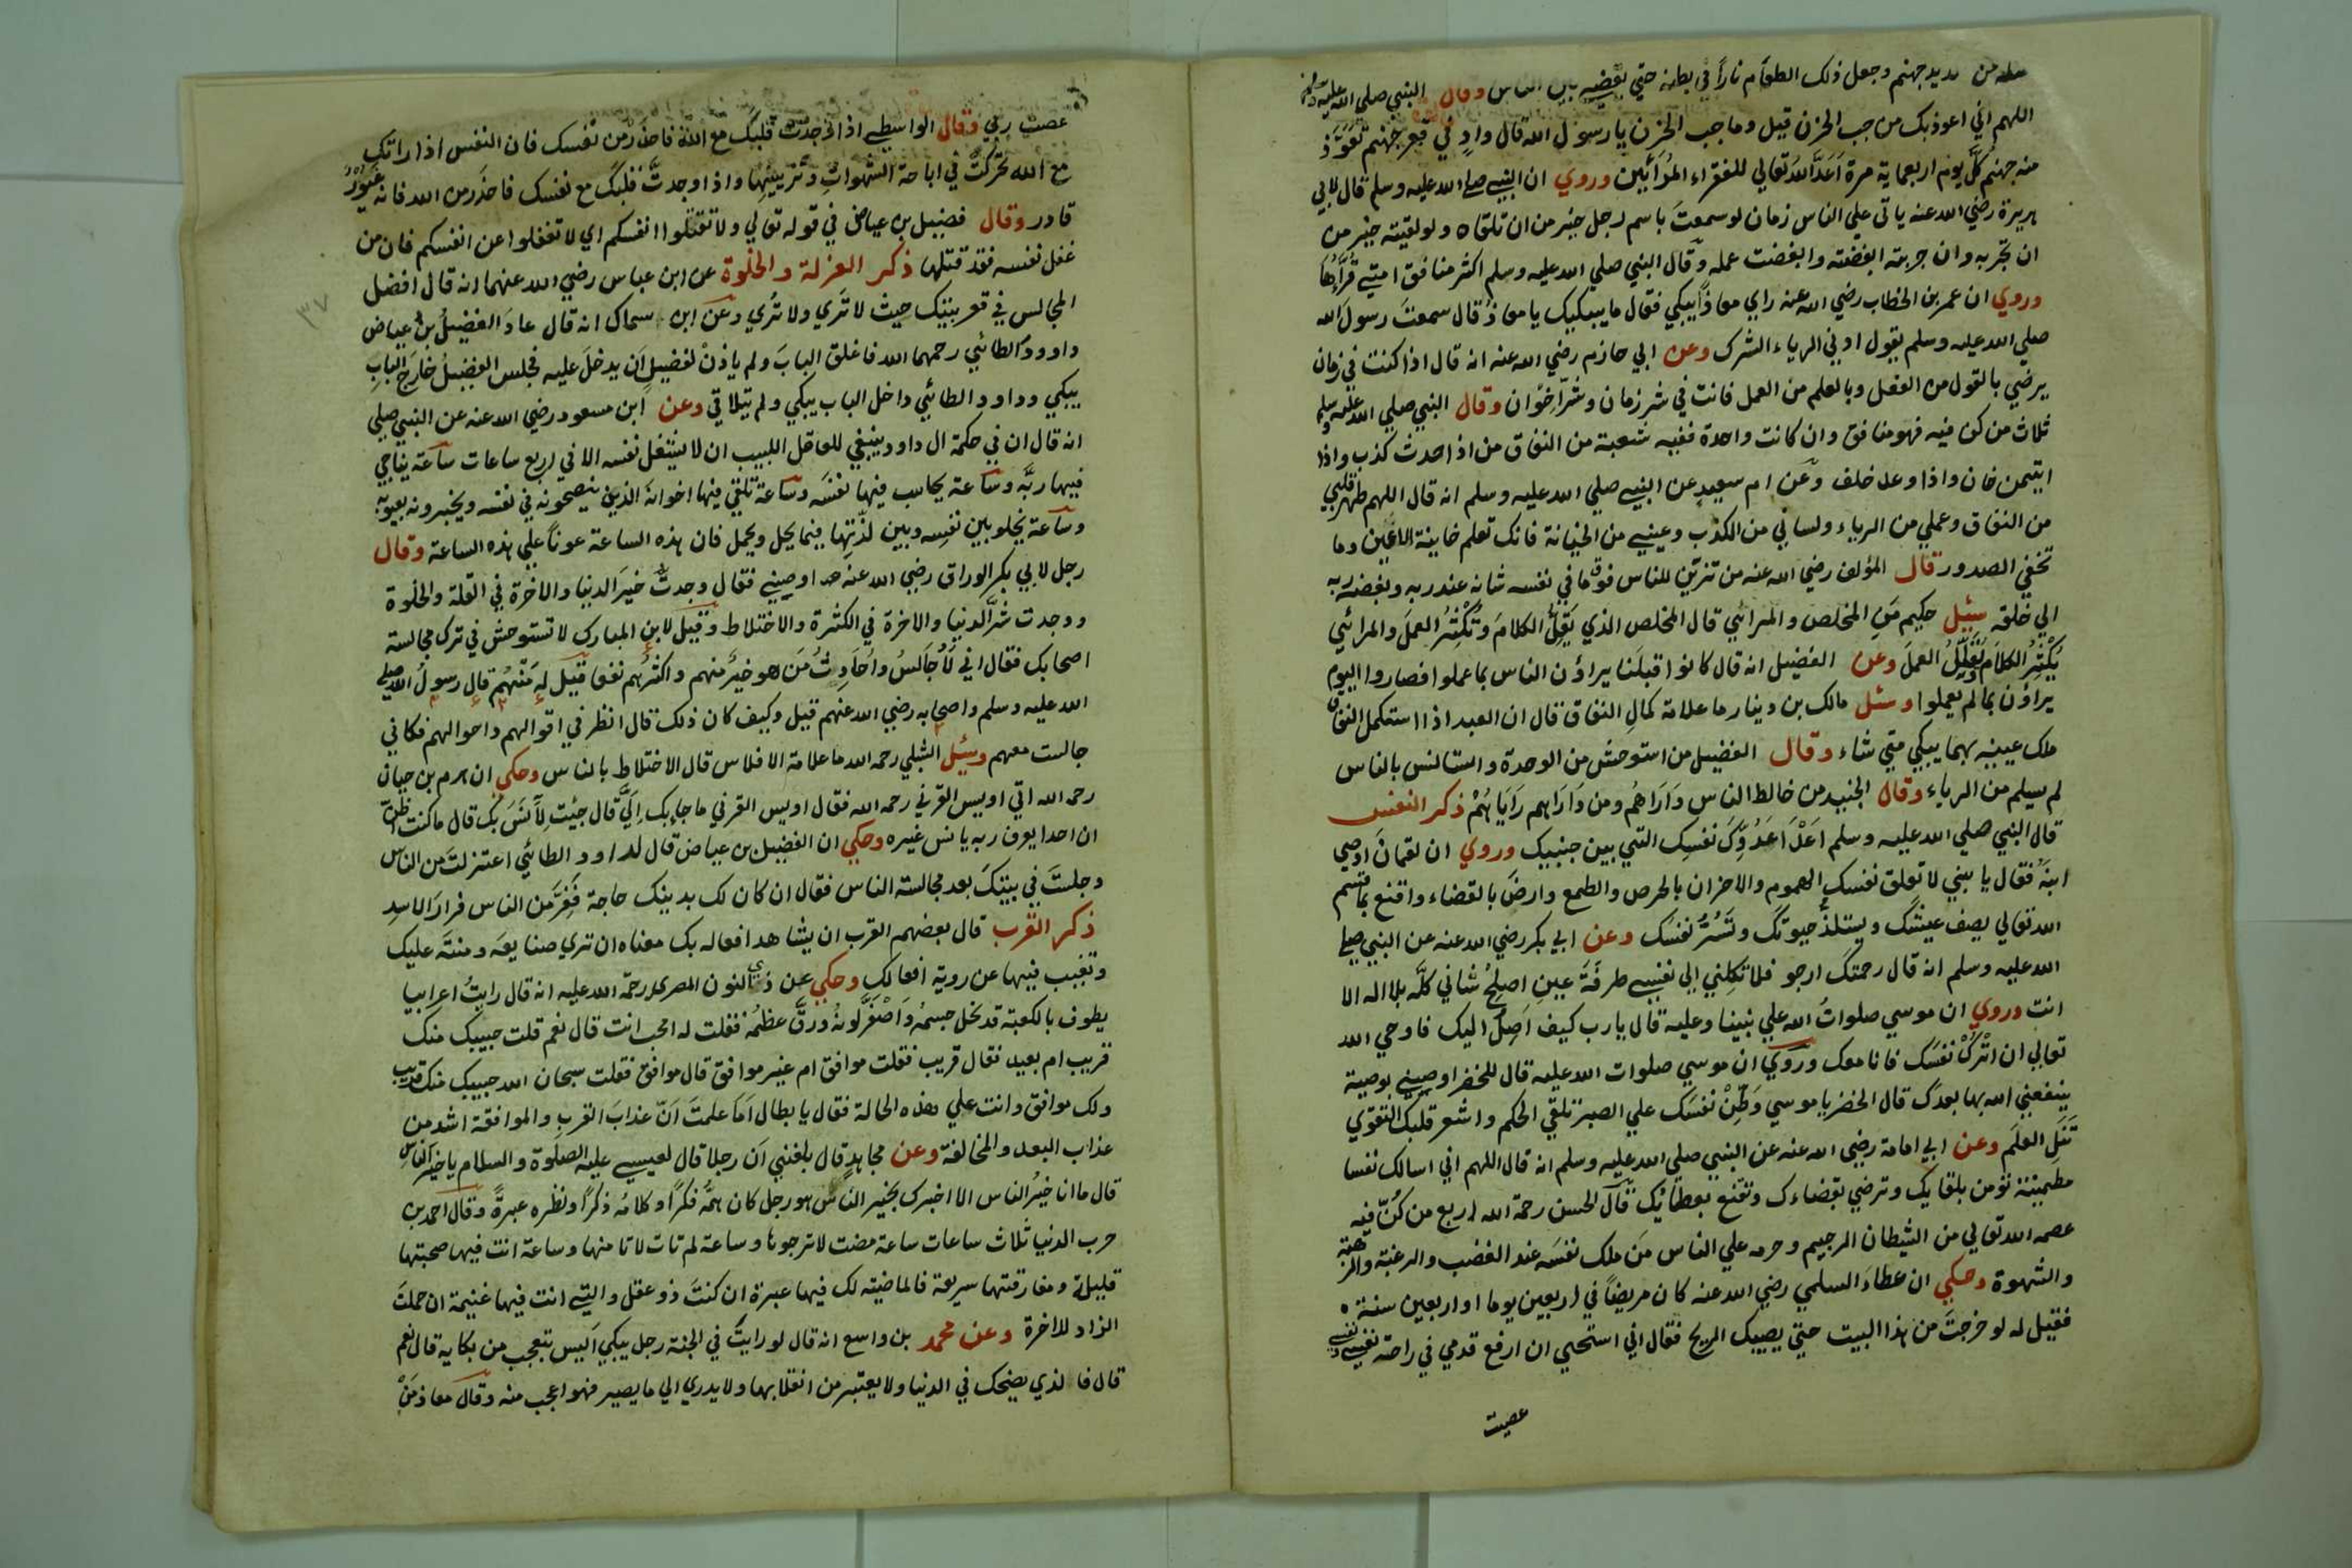 من صديد جهنم وجعل ذلك الطعام نارا في بطنه حتي يقضيه بين الناس وقال النبي صلي الله عليه وسلم
اللهم اني اعوذبك من جب الحزن قيل وما جب الحزن يا رسول الله قال وادٍ في قعر جهنم تعوذ
منه جهنم كل يوم اربعماية مرة اعد الله تعالي للفقراء المرائين وروي ان النبي صلي الله عليه وسلم قال لابي
هريرة رضي الله عنه ياتي علي الناس زمان لو سمعت باسم رجل خير من ان تلقاه ولو لقيته خير من
ان تجربه وان جربته ابغضته وابغضت عمله وقال النبي صلي الله عليه وسلم اكثر منافق امتي قراؤها
وروي ان عمر بن الخطاب رضي الله عنه راي معاذا يبكي فقال ما يبكيك يا معاذ قال سمعت رسول الله
صلي الله عليه وسلم يقول ادني الرياء الشرك وعن ابي حازم رضي الله عنه انه قال اذا كنت في زمان
يرضي بالقول من الفعل وبالعلم من العمل فانت في شر زمان وشر اخوان وقال النبي صلي الله عليه وسلم
ثلاث من كن فيه فهو منافق وان كانت واحدة ففيه شعبة من النفاق من اذا حدث كذب واذا
ايتمن خان واذا وعد خلف وعن ام سعيد عن النبي صلي الله عليه وسلم انه قال اللهم طهر قلبي
من النفاق وعملي من الرياء ولساني من الكذب وعيني من الخيانة فانك تعلم خاينة الاعين وما
تخفي الصدور قال المؤلف رضي الله عنه من تزين للناس فوق ما في نفسه شانه عند ربه وبغضه ربه
الي خلقه سئيل حكيم من المخلص والمرائي قال المخلص الذي يقل الكلام وتكثر العمل والمرائي
يكثر الكلام ويقلل العمل وعن الفضيل انه قال كانوا قبلنا يراؤن الناس بما عملوا فصاروا اليوم
يراؤن بما لم يعملوا وسئل مالك بن دينار ما علامة كمال النفاق قال ان العبد اذا استكمل النفاق
ملك عينيه بهما يبكي متي شاء وقال الفضيل من استوحش من الوحدة واستانس بالناس
لم يسلم من الرياء وقال الجنيد من خالط الناس داراهم ومن داراهم راياهم ذكر النفس
قال النبي صلي الله عليه وسلم اعدا عدوك نفسك التي بين جنبيك وروي ان لقمان اوصي
ابنه فقال يا بني لا تعلق نفسك الهموم والاحزان بالحرص والطمع وارض بالقضاء واقنع بما قسم
الله تعالي يصف عيشك ويستلذ حيوتك وتسر نفسك وعن ابي بكر رضي الله عنه عن النبي صلي
الله عليه وسلم انه قال رحمتك ارجو فلا تكلني الي نفسي طرفة عين اصلح شاني كله بلا اله الا
انت وروي ان موسي صلوات الله علي نبينا وعليه قال يا رب كيف اصل اليك فاوحي الله
تعالي ان اترك نفسك فانا معك وروي ان موسي صلوات الله عليه قال للخضر اوصيني بوصية
ينفعني الله بها بعدك قال الخضر يا موسي وطن نفسك علي الصبر تلقي الحكم واشعر قلبك التقوي
تنل العلم وعن ابي امامة رضي الله عنه عن النبي صلي الله عليه وسلم انه قال اللهم اني اسالك نفسا
مطمينة تؤمن بلقايك وترضي بقضاءك وتقنع بعطائك قال الحسن رحمة الله اربع من كن فيه
عصمه الله تعالي من الشيطان الرجيم وحرمه علي الناس من ملك نفسه عند الغضب والرغبة والرهبة
والشهوة وحكي ان عطاء السلمي رضي الله عنه كان مريضا في اربعين يوما او اربعين سنة
فقيل له لو خرجت من هذا البيت حتي يصيبك الريح فقال اني استحيي ان ارفع قدمي في راحة نفسي
عصيت
عصت ربي وقال الواسطي اذا وجدت قلبك مع الله فاحذر من نفسك فان النفس اذا راتك
مع الله تحركت في اباحة الشهوات وتزيينها واذا وجدت قلبك مع نفسك فاحذر من الله فانه غيور
قادر وقال فضيل بن عياض في قوله تعالي ولا تقتلوا انفسكم اي لا تغفلوا عن انفسكم فان من
غفل نفسه فقد قتلها ذكر العزلة والخلوة عن ابن عباس رضي الله عنهما انه قال افضل
المجالس في قعر بيتك حيث لا تري ولا تري وعن ابن سماك انه قال عاد الفضيل بن عياض
داوود الطائي رحمهما الله فاغلق الباب ولم ياذن لفضيل ان يدخل عليه فجلس الفضيل خارج الباب
يبكي وداود الطائي داخل الباب يبكي ولم يتلاقي وعن ابن مسعود رضي الله عنه عن النبي صلي
انه قال ان في حكمة ال داود ينبغي للعاقل اللبيب ان لا يشتغل نفسه الا في اربع ساعات ساعة يناجي
فيها ربه وساعة يحاسب فيها نفسه وساعة تلقي فيها اخوانه الذين ينصحونه في نفسه ويخبرونه بعيوبه
وساعة يخلو بين نفسه وبين لذتها فيما يحل ويجمل فان هذه الساعة عونا علي هذه الساعة وقال
رجل لابي بكر الوراق رضي الله عنه اوصيني فقال وجدت خير الدنيا والاخرة في القلة والخلوة
ووجدت شر الدنيا والاخرة في الكثرة والاختلاط وقيل لابن المبارك لا تستوحش في ترك مجالسة
اصحابك فقال اني لاجالس واحادث من هو خير منهم واكثرهم نفعا قيل له منهم قال رسول الله صلي
الله عليه وسلم واصحابه رضي الله عنهم قيل وكيف كان ذلك قال انظر في اقوالهم واحوالهم فكاني
جالست معهم وسئيل الشبلي رحمه الله ما علامة الافلاس قال الاختلاط بالناس وحكي ان هرم بن حيان
رحمه الله اتي اويس القرني رحمه الله فقال اويس القرني ما جاء بك الي قال جئت لآنس بك قال ما كنت اظن
ان احدا يعرف ربه يانس غيره وحكي ان الفضيل بن عياض قال لداوود الطائي اعتزلت من الناس
وجلست في بيتك بعد مجالسة الناس فقال ان كان لك بدينك حاجة ففر من الناس فرارا لاسد
ذكر القرب قال بعضهم القرب ان يشاهد افعاله بك معناه ان تري صنايعه ومنته عليك
وتغيب فيها عن روية افعالك وحكي عن ذي النون المصري رحمة الله عليه انه قال رايت اعرابيا
يطوف بالكعبة قد نحل جسمه واصفر لونه ورق عظمه فقلت له امحب انت قال نعم قلت حبيبك منك
قريب ام بعيد فقال قريب فقلت موافق ام غير موافق قال موافق فقلت سبحان الله حبيبك منك قريب
ولك موافق وانت علي هذه الحالة فقال يا بطال اما علمت ان عذاب القرب والموافقة اشد من
عذاب البعد والمخالفة وعن مجاهد قال بلغني ان رجلا قال لعيسي عليه الصلوة والسلام يا خير الناس
قال ما انا خير الناس الا اخبرك بخير الناس هو رجل كان همه فكرا وكلامه ذكرا ونظره عبرة وقال احمد بن
حرب الدنيا ثلاث ساعات ساعة مضت لا ترجوها وساعة لم تات لا تامنها وساعة انت فيها صحبتها
قليلة ومفارقتها سريعة فالماضية لك فيها عبرة ان كنت ذو عقل والتي انت فيها غنيمة ان حملت
الزاد للاخرة وعن محمد بن واسع انه قال لو رايت في الجنة رجل يبكي اليس تتعجب من بكايه قال نعم
قال فالذي يضحك في الدنيا ولا يعتبر من انقلابها ولا يدري الي ما يصير فهو اعجب منه وقال معاذ من
٣٧